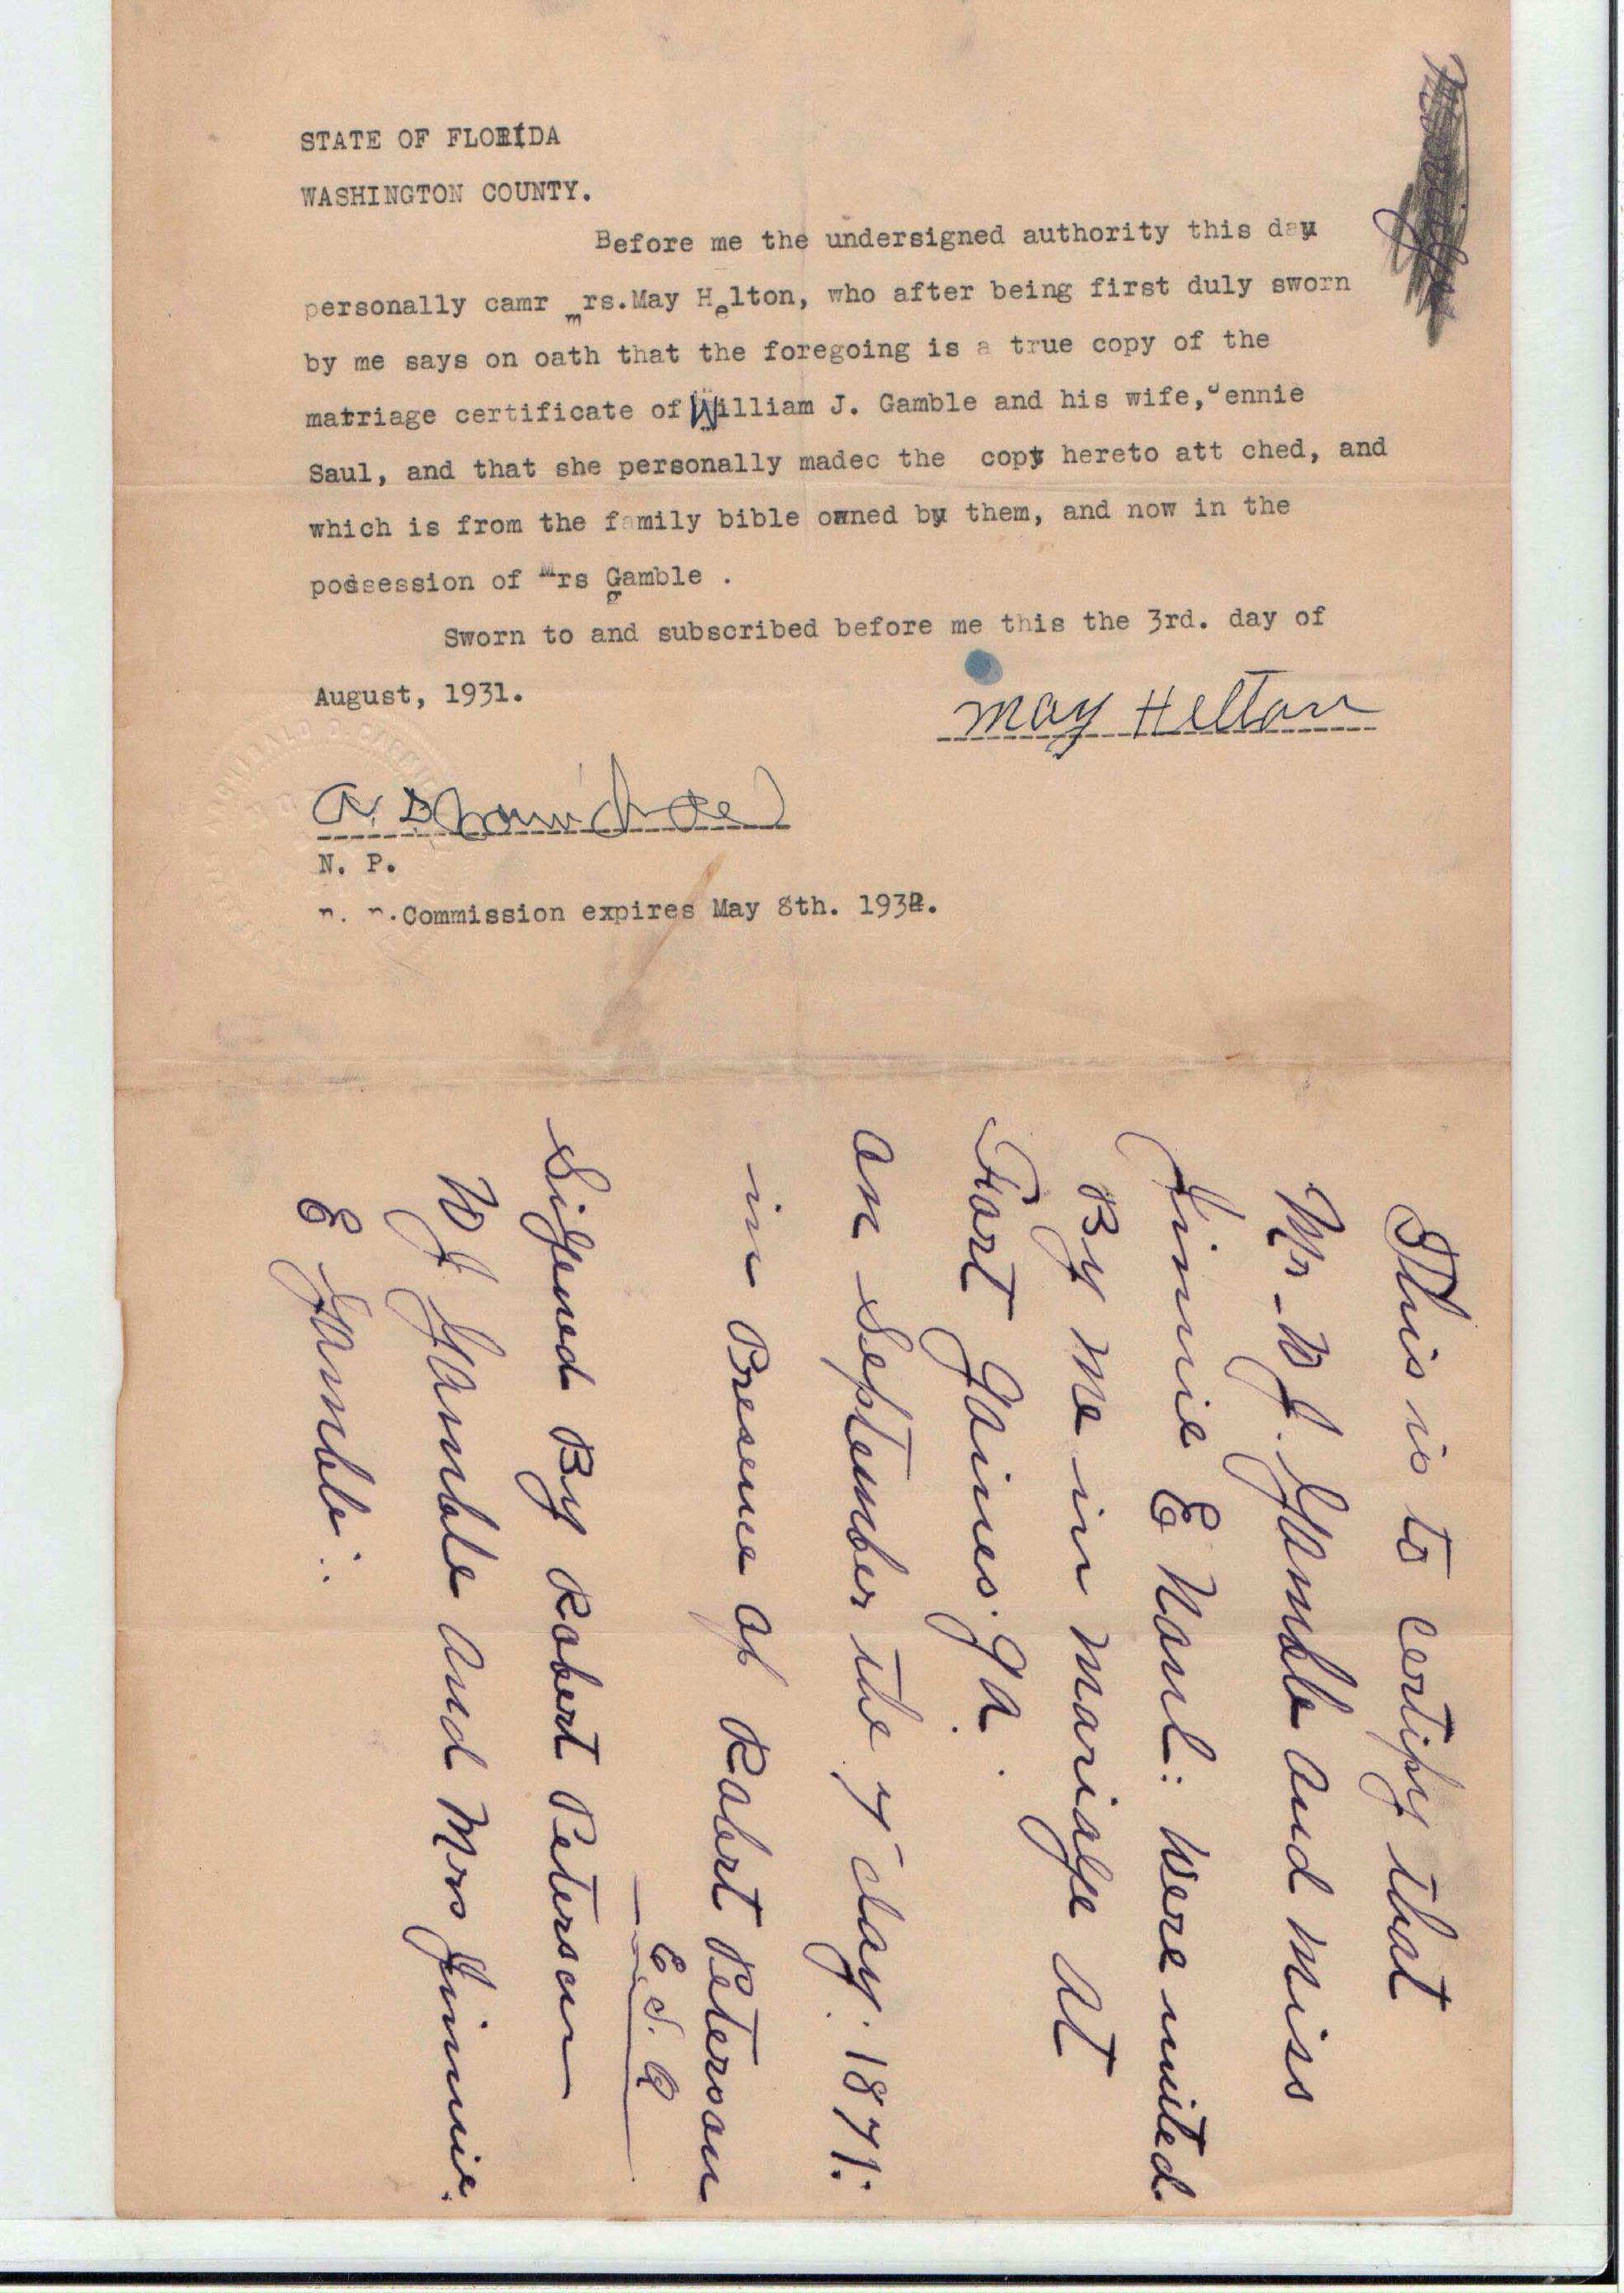 STATE OF FLORIDA
WASHINGTON COUNTY.
Before me the undersigned authority this day
personally camr mrs.May Helton, who after being first duly sworn
by me says on oath that the foregoing is a true copy of the
matriage certificate of William J. Gamble and his wife, Jennie
Saul, and that she personally madec the copy hereto att ched, and
which is from the family bible owned by them, and now in the
possession of Mrs Gamble .
Sworn to and subscribed before me this the 3rd. day of
August, 1931.
May Helton
N. P.
Commission expires May 8th. 1932.
This is to certify that
Mr - W J. Gamble and Miss
Jinnie E Naul: Were united
By Me in Mariage At
Fort Gaines. Ga.
on September the 7 day. 1871:
in Presence of Robert Peterson
E. S. Q
Sifened By Robert Peterson
W J Gamble And Mrs Jinnie.
E Gamble:.